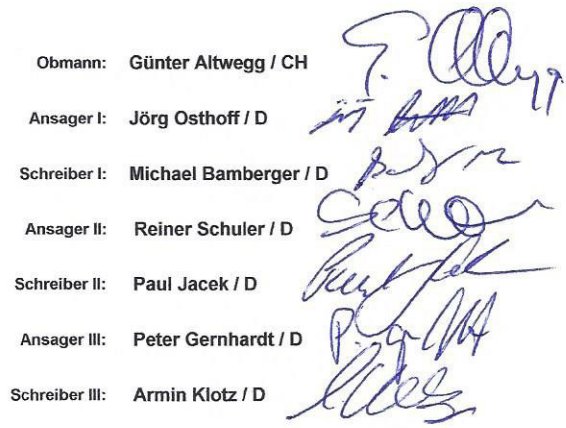 Obmann: Günter Altwegg / CH
Ansager I: Jörg Osthoff / D
Schreiber I: Michael Bamberger / D
Ansager II: Reiner Schuler / D
Schreiber II: Paul Jacek / D
Ansager III: Peter Gernhardt / D
Schreiber III: Armin Klotz / D